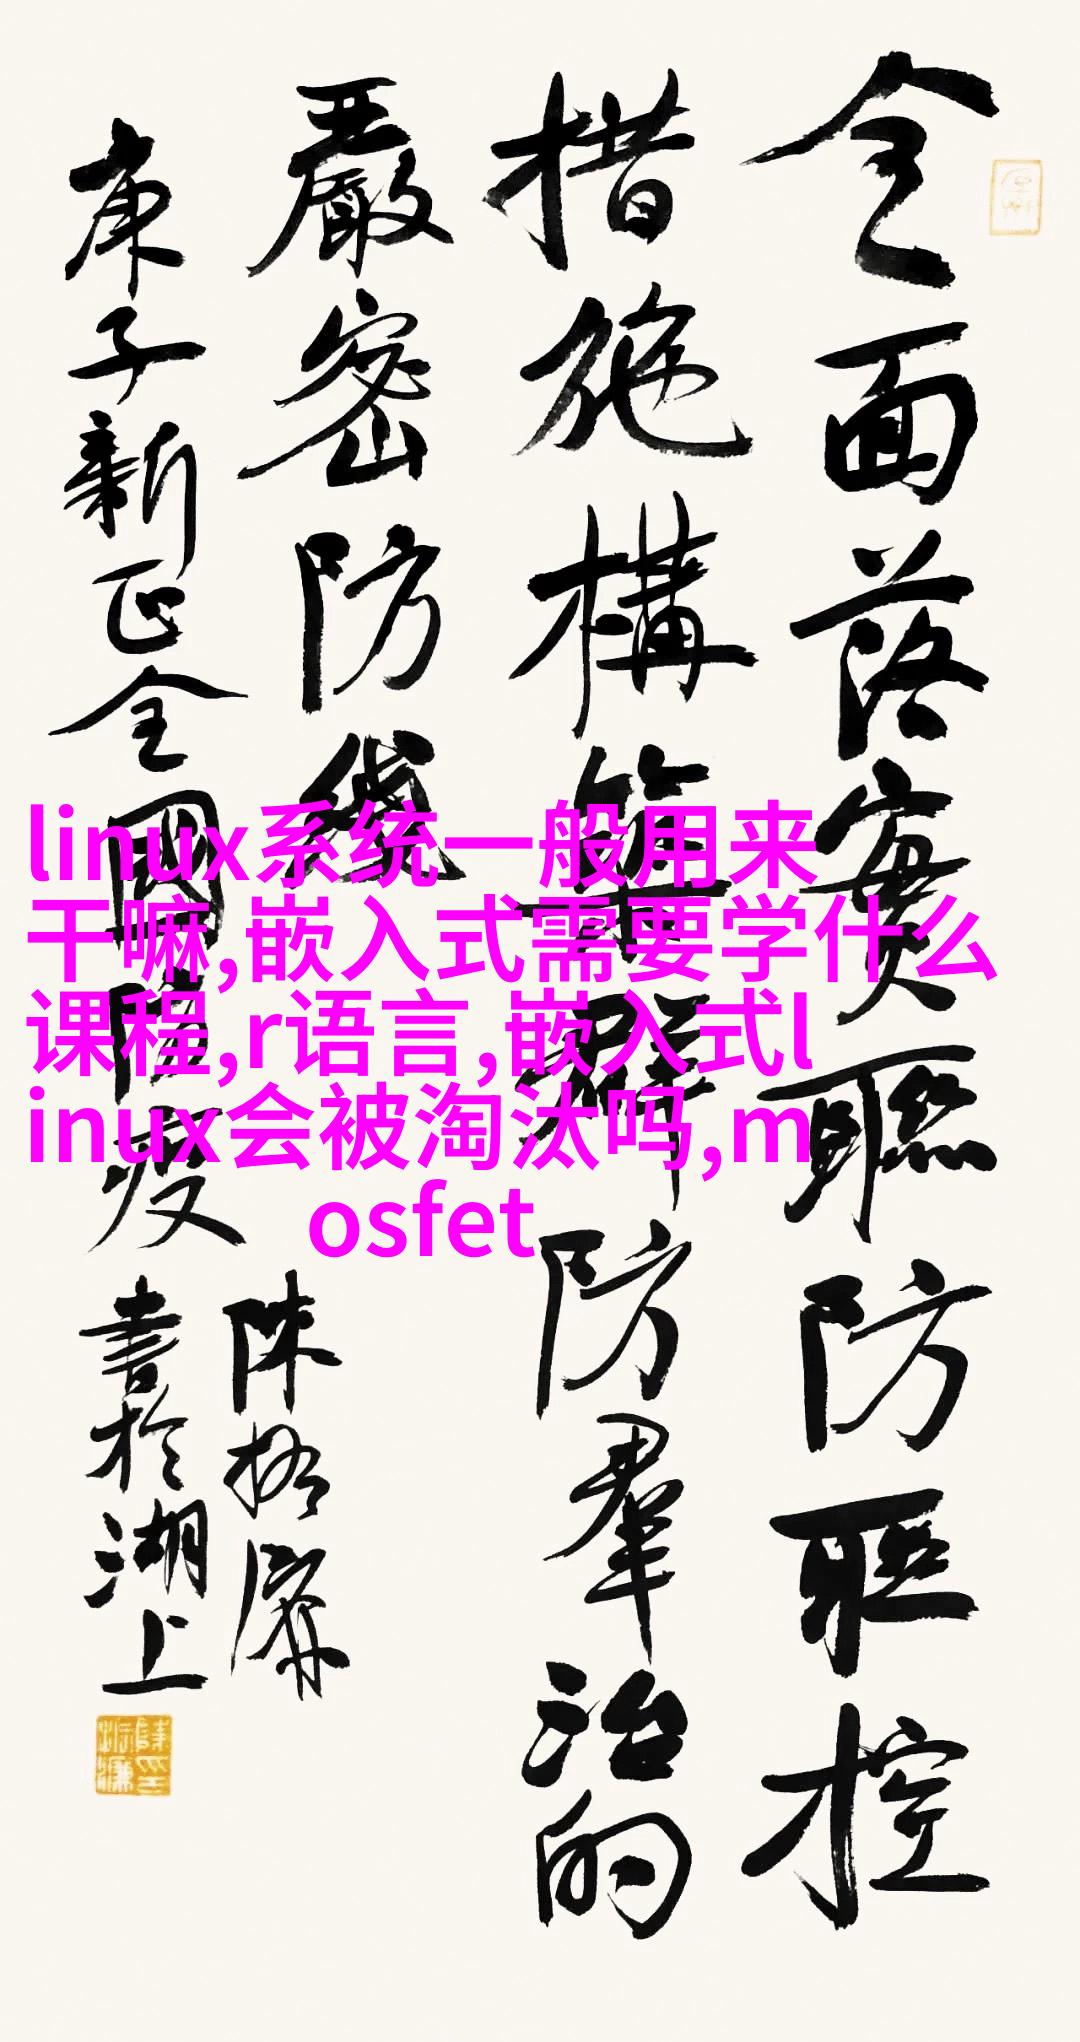 全面落實聯防聯控
措施構築群防羣治的
嚴密防綫
庚子新正全國防疫
陳振濂
書於湖上
linux系统一般用来
干嘛,嵌入式需要学什么
课程,r语言,嵌入式l
inux会被淘汰吗,m
osfet